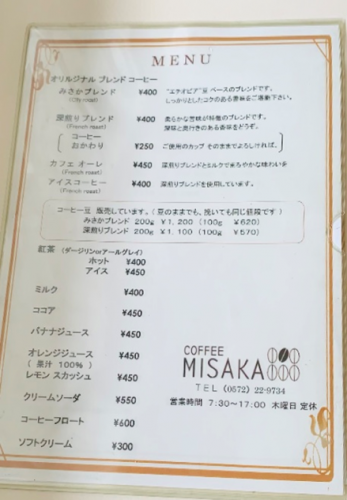 MENU
オリルジナル ブレンド コーヒー
みさかブレンド ¥400 "エチオピア"豆 ベースのブレンドです。
(City roast) しっかりとしたコクのある香味をご堪能下さい。
深煎りブレンド ¥400 柔らかな苦味が特徴のブレンドです。
(French roast) 深味と奥行きのある香味をどうぞ。
コーヒー
おかわり ¥250 ご使用のカップ そのままでよろしければ。
カフェ オーレ ¥450 深煎りブレンドとミルクでまろやかな味わいを
(French roast)
アイスコーヒー ¥400 深煎りブレンドを使用しています。
(French roast)
コーヒー豆 販売しています。( 豆のままでも、挽いても同じ値段です )
みさかブレンド 200g ¥1,200 (100g ¥620)
深煎りブレンド 200g ¥1,100 (100g ¥570)
紅茶 (ダージリンorアールグレイ)
ホット ¥400
アイス ¥450
ミルク ¥400
ココア ¥450
バナナジュース ¥450
オレンジジュース ¥450
( 果汁 100% )
レモン スカッシュ ¥450
クリームソーダ ¥550
コーヒーフロート ¥600
ソフトクリーム ¥300
COFFEE
MISAKA
TEL (0572) 22-9734
営業時間 7:30~17:00 木曜日 定休